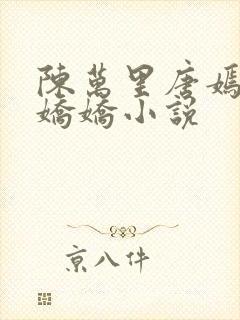 陳萬里唐嫣
嬌嬌小説
京八件